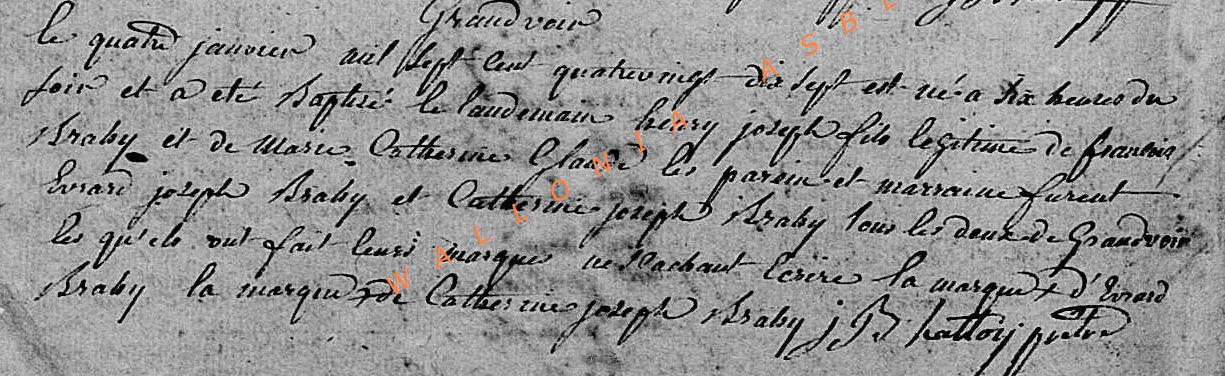 Grandvoir
le quatre janvier mil sept cent quatrevingt dix sept est né a six heures du
soir et a eté Baptisé le landemain henry joseph fils legitime de francois
Braby et de Marie Catherine les paroin et marraine furent
Evrard joseph Braby et Catherine joseph Braby tous les deux de Grandvoir
les qu'els ont fait leurs marque ne sachant écrire la marque + d'Evrard
Braby la marque + de Catherine joseph Braby j B pretre
WALLONIA ASBL